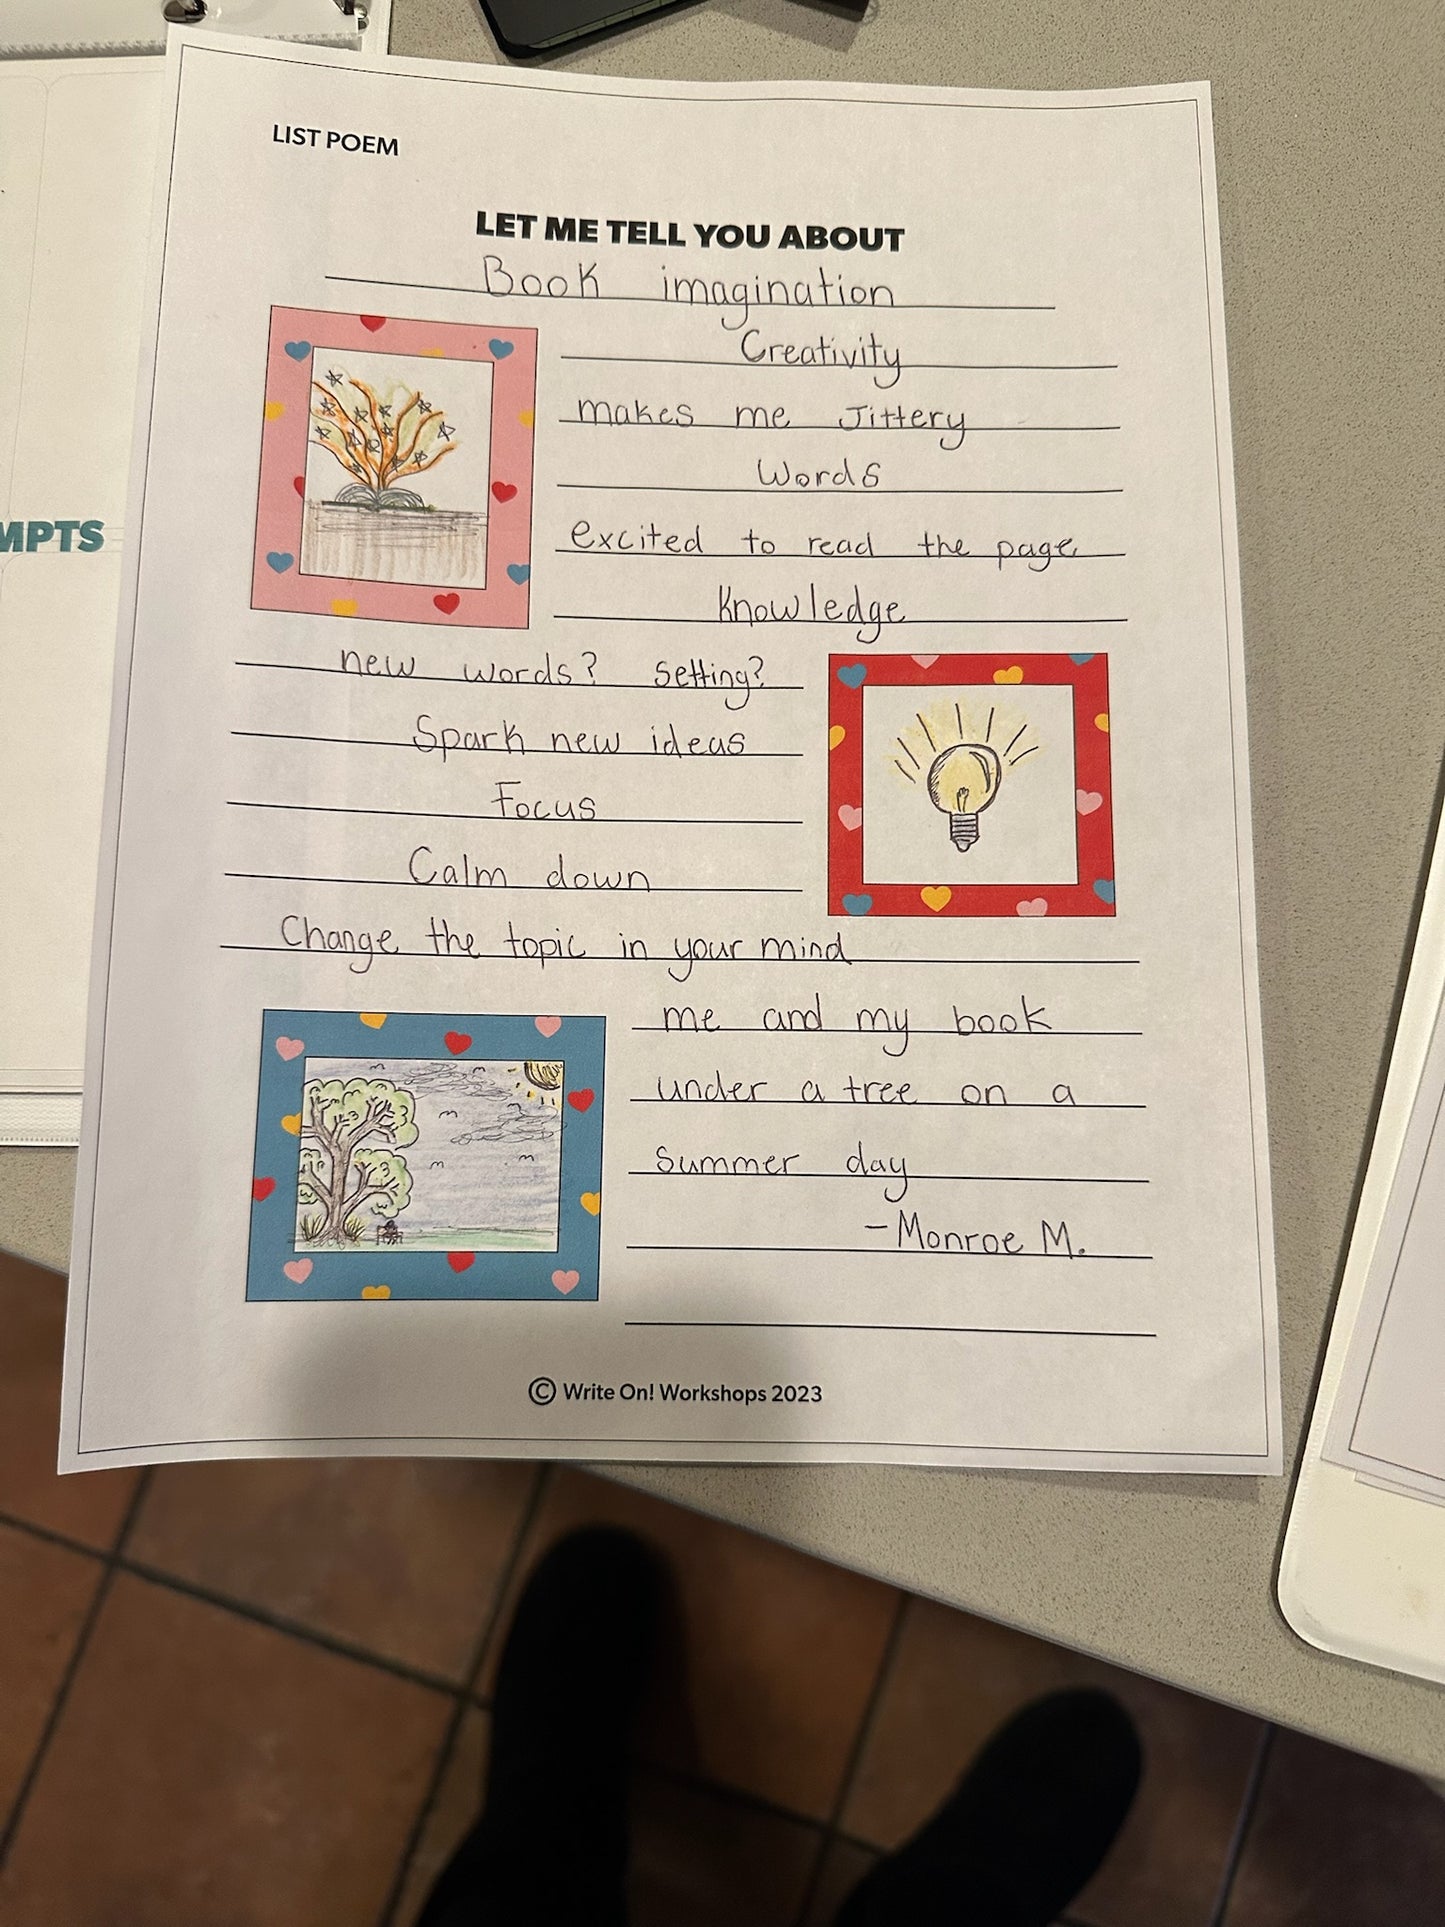 MPTS
LIST POEM
LET ME TELL YOU ABOUT
Book imagination
Creativity
makes me Jittery
Words
excited to read the page
Knowledge
new words? setting?
Spark new ideas
Focus
Calm down
Change the topic in your mind
me and my book
under a tree on a
summer day
-Monroe M.
© Write On! Workshops 2023